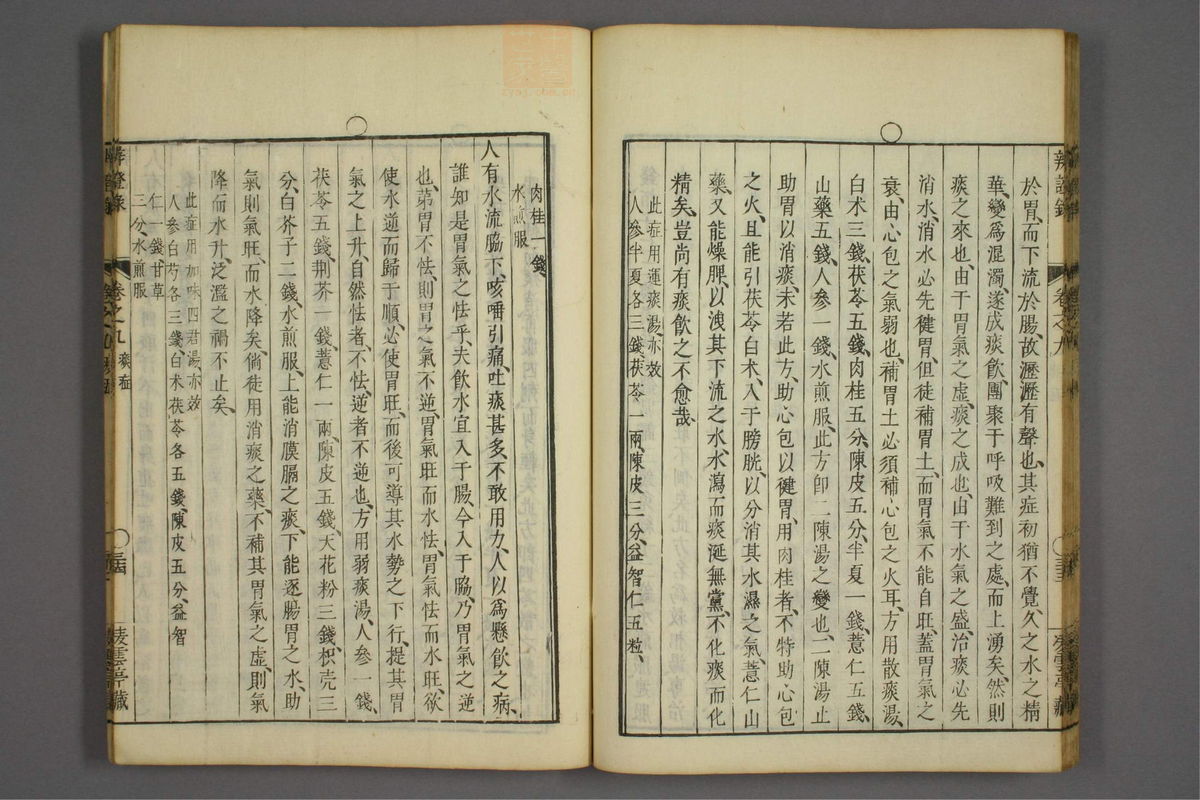 於胃而下流於腸故瀝瀝有聲也其症初猶不覺久之水之精
華變爲混濁遂成痰飲團聚于呼吸難到之處而上湧矣然則
痰之來也由于胃氣之虛痰之成也由于水氣之盛治痰必先
消水消水必先健胃但徒補胃土而胃氣不能自旺蓋胃氣之
衰由心包之氣弱也補胃土必須補心包之火耳方用散痰湯
白术三錢茯苓五錢肉桂五分陳皮五分半夏一錢薏仁五錢
山藥五錢人參一錢水煎服此方卽二陳湯之變也二陳湯止
助胃以消痰未若此方助心包以健胃用肉桂者不特助心包
之火且能引茯苓白术入于膀胱以分消其水濕之氣薏仁山
藥又能燥脾以洩其下流之水水瀉而痰涎無黨不化痰而化
精矣豈尚有痰飲之不愈哉
此症用運痰湯亦效
人參半夏各三錢茯苓一兩陳皮三分益智仁五粒
肉桂一錢
水煎服
人有水流脇下咳唾引痛吐痰甚多不敢用力人以爲懸飲之病
誰知是胃氣之怯乎夫飲水宜入于腸今入于脇乃胃氣之逆
也第胃不怯則胃之氣不逆胃氣旺而水怯胃氣怯而水旺欲
使水逆而歸于順必使胃旺而後可導其水勢之下行提其胃
氣之上升自然怯者不怯逆者不逆也方用弱痰湯人參一錢
茯苓五錢荆芥一錢薏仁一兩陳皮五錢天花粉三錢枳壳三
分白芥子二錢水煎服上能消膜膈之痰下能逐腸胃之水助
氣則氣旺而水降矣倘徒用消痰之藥不補其胃氣之虛則氣
降而水升泛濫之禍不止矣
此症用加味四君湯亦效
人參白芍各三錢白术茯苓各五錢陳皮五分益智
仁一錢甘草
三分水煎服
辨證錄
卷之九
痰症